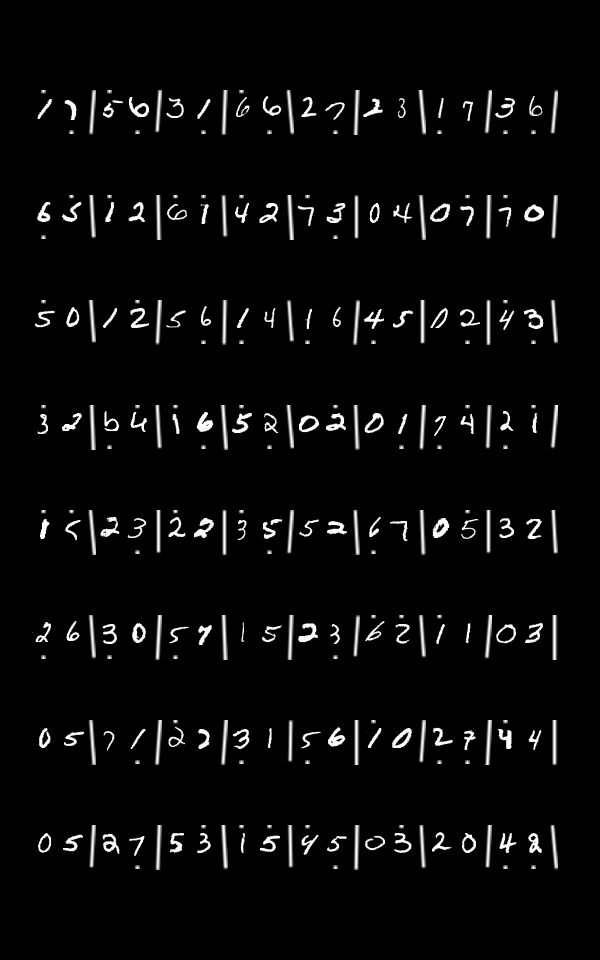 1 7 | 5 6 | 3 1 | 6 6 | 2 7 | 2 3 | 1 7 | 3 6 |
6 5 | 1 2 | 6 1 | 4 2 | 7 3 | 0 4 | 0 7 | 7 0 |
5 0 | 1 2 | 5 6 | 1 4 | 1 6 | 4 5 | 0 2 | 4 3 |
3 2 | 5 4 | 1 6 | 5 2 | 0 2 | 0 1 | 7 4 | 2 1 |
1 5 | 2 3 | 2 2 | 3 5 | 5 2 | 6 7 | 0 5 | 3 2 |
2 6 | 3 0 | 5 7 | 1 5 | 2 3 | 6 2 | 1 1 | 0 3 |
0 5 | 7 1 | 2 2 | 3 1 | 5 6 | 1 0 | 2 7 | 4 4 |
0 5 | 2 7 | 5 3 | 1 5 | 4 5 | 0 3 | 2 0 | 4 2 |